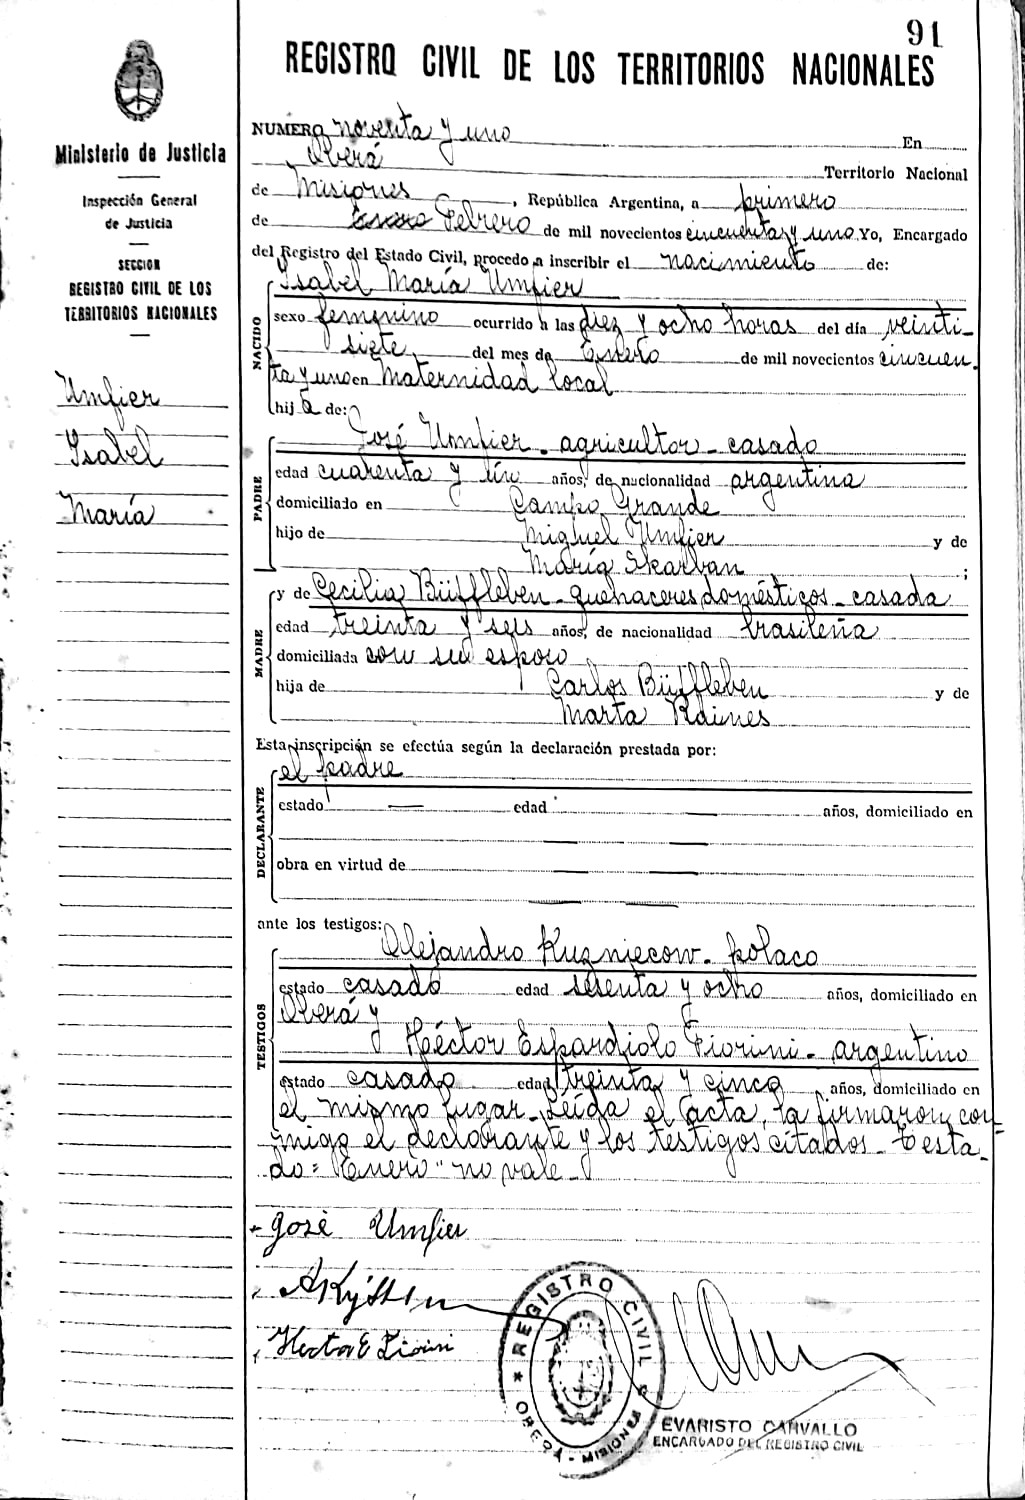 91
REGISTRO CIVIL DE LOS TERRITORIOS NACIONALES
Ministerio de Justicia
Inspección General
de Justicia
SECCION
REGISTRO CIVIL DE LOS
TERRITORIOS NACIONALES
Umfier
Isabel
María
NUMERO noventa y uno En
Oberá Territorio Nacional
de Misiones, República Argentina, a primero
de Enero Febrero de mil novecientos cincuenta y uno Yo, Encargado
del Registro del Estado Civil, procedo a inscribir el nacimiento de:
NACIDO
Isabel María Umfier
sexo femenino ocurrido a las diez y ocho horas del día veinti-
siete del mes de Enero de mil novecientos cincuen
ta y uno en Maternidad local
hija de:
PADRE
José Umfier - agricultor - casado
edad cuarenta y un años, de nacionalidad argentina
domiciliado en Campo Grande
hijo de Miguel Umfier y de
María Skarban ;
MADRE
y de Cecilia Büffleben - quehaceres domésticos - casada
edad treinta y seis años, de nacionalidad brasileña
domiciliada con su esposo
hija de Carlos Büffleben y de
Marta Raines
Esta inscripción se efectúa según la declaración prestada por:
DECLARANTE
el padre
estado — edad — años, domiciliado en
obra en virtud de
ante los testigos:
TESTIGOS
Alejandro Kuzniecow - polaco
estado casado edad sesenta y ocho años, domiciliado en
Oberá y
Héctor Espardiolo Fiorini - argentino
estado casado edad treinta y cinco años, domiciliado en
el mismo lugar - Leída el acta, la firmaron con-
migo el declarante y los testigos citados - Testa-
do = "Enero" no vale -
José Umfier
Hector E Fiorini
* REGISTRO CIVIL *
OBERA - MISIONES
EVARISTO CARVALLO
ENCARGADO DEL REGISTRO CIVIL